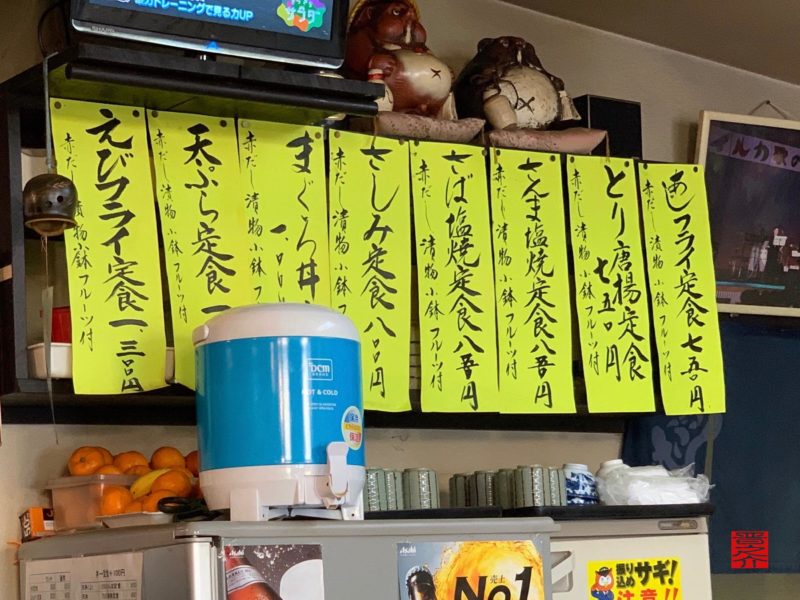 トレーニングで見る力UP
サラダ
あじフライ定食 七五〇円
赤だし 漬物 小鉢 フルーツ付
とり唐揚定食
七五〇円
赤だし 漬物 小鉢 フルーツ付
さんま塩焼定食 八五〇円
赤だし 漬物 小鉢 フルーツ付
さば塩焼定食 八五〇円
赤だし 漬物 小鉢 フルーツ付
さしみ定食 八〇〇円
赤だし 漬物 小鉢 フルーツ付
まぐろ丼
一、〇〇
赤だし 漬物 小鉢
天ぷら定食 一
赤だし 漬物 小鉢 フルーツ付
えびフライ定食 一、三〇〇円
赤だし 漬物 小鉢 フルーツ付
イルカ
DCM
HOT & COLD
保冷
保温
Asahi
Asahi
売上
No1
振り込め サギ!
注意!!